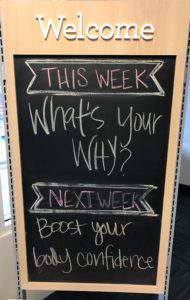 Welcome
THIS WEEK
What's your
WHY?
NEXT WEEK
Boost your
body confidence